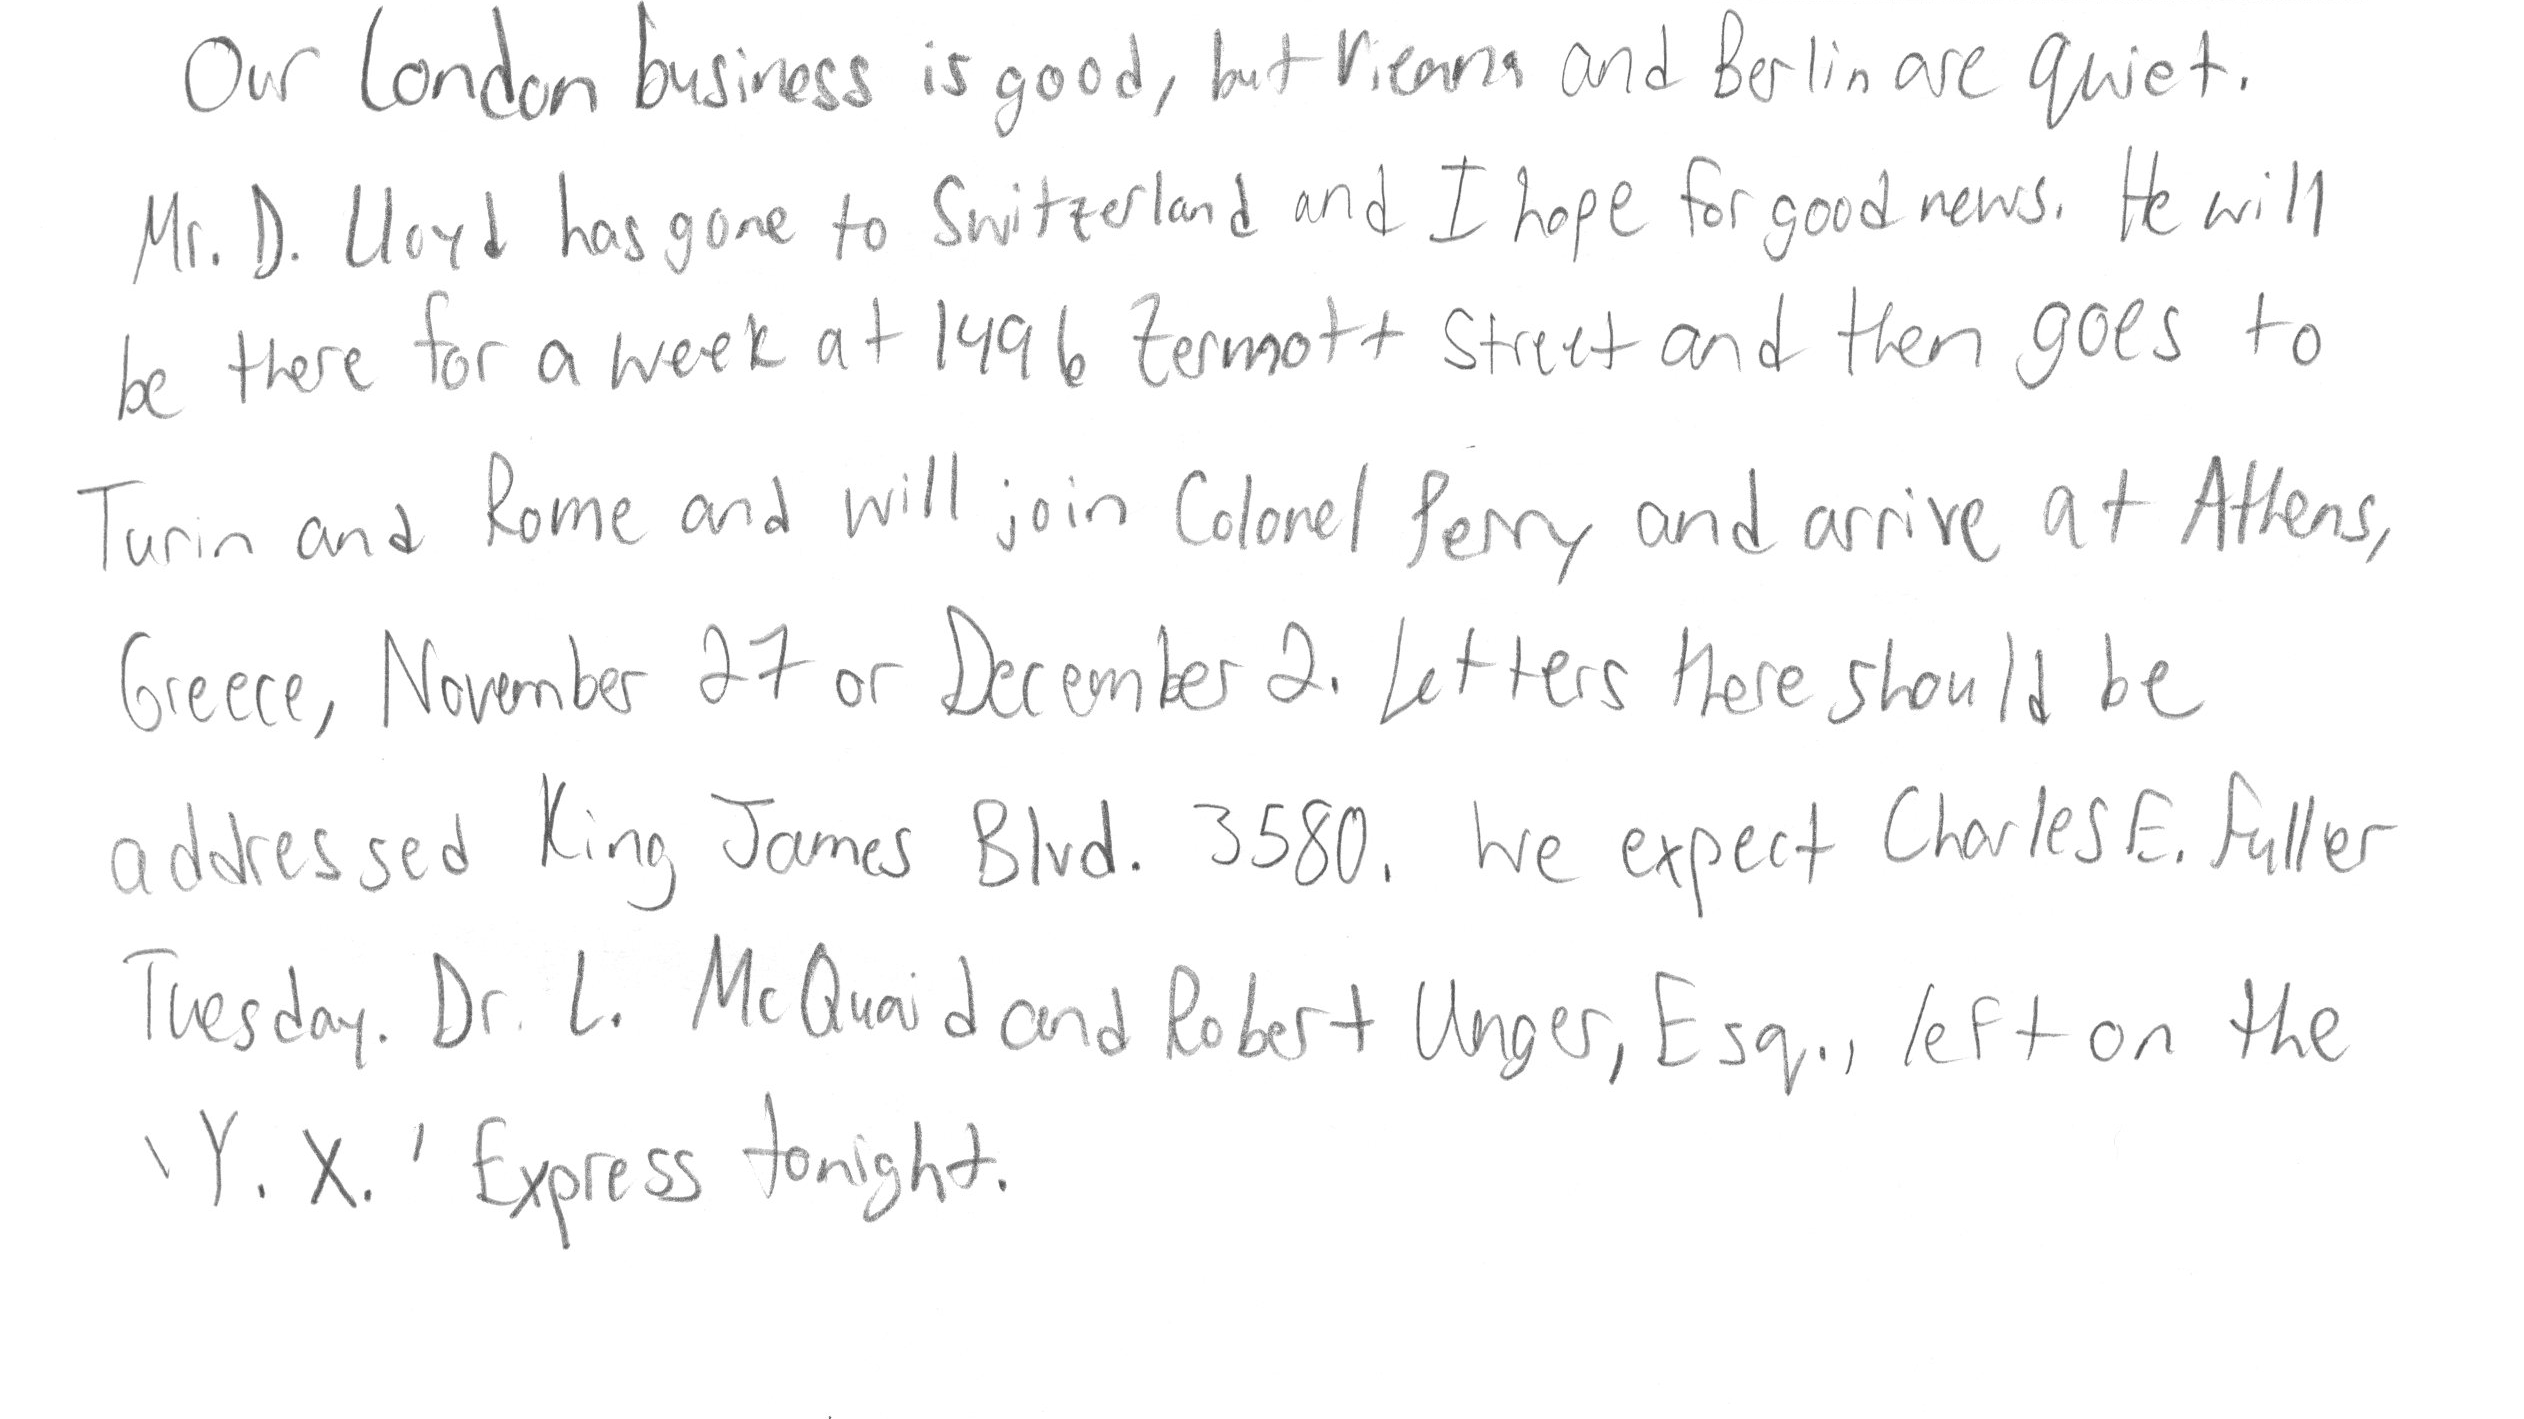 Our London business is good, but Vienna and Berlin are quiet.
Mr. D. Lloyd has gone to Switzerland and I hope for good news. He will
be there for a week at 1496 Zermott Street and then goes to
Turin and Rome and will join Colonel Perry and arrive at Athens,
Greece, November 27 or December 2. Letters there should be
addressed King James Blvd. 3580. We expect Charles E. Fuller
Tuesday. Dr. L. McQuaid and Robert Unger, Esq., left on the
'Y. X.' Express tonight.